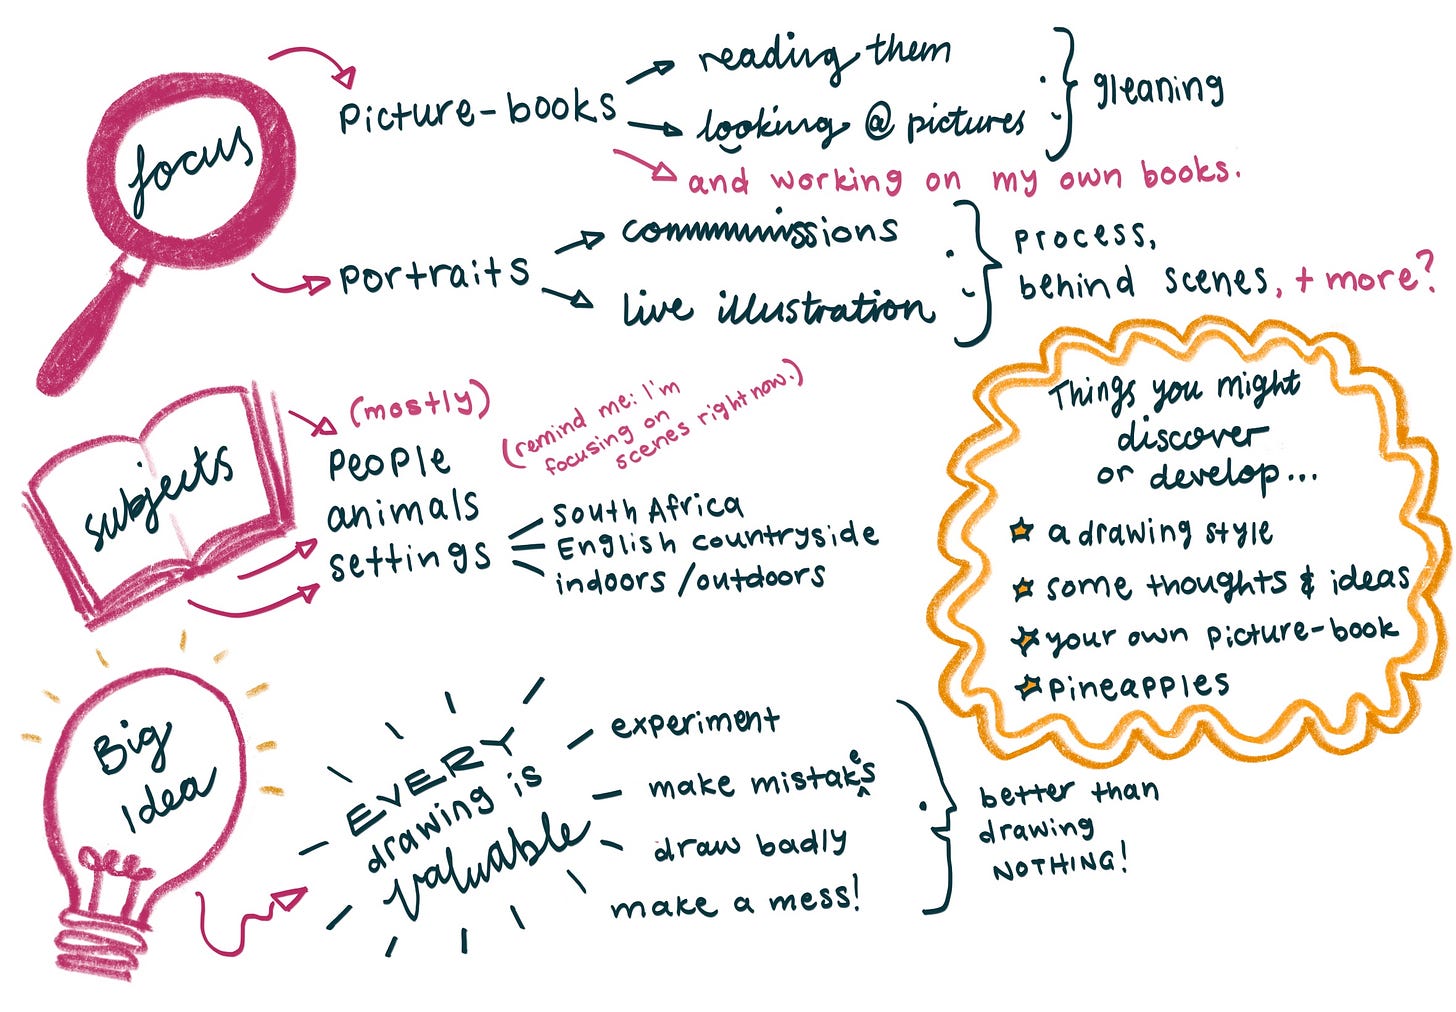 focus
picture-books
reading them
looking @ pictures
gleaning
and working on my own books.
portraits
commmmissions
live illustration
process,
behind scenes, + more?
subjects
(mostly)
people
animals
settings
(remind me: I'm
focusing on
scenes right now.)
South Africa
English countryside
indoors/outdoors
Things you might
discover
or develop...
a drawing style
some thoughts & ideas
your own picture-book
pineapples
Big
Idea
EVERY
drawing is
valuable
experiment
make mistakes
draw badly
make a mess!
better than
drawing
NOTHING!